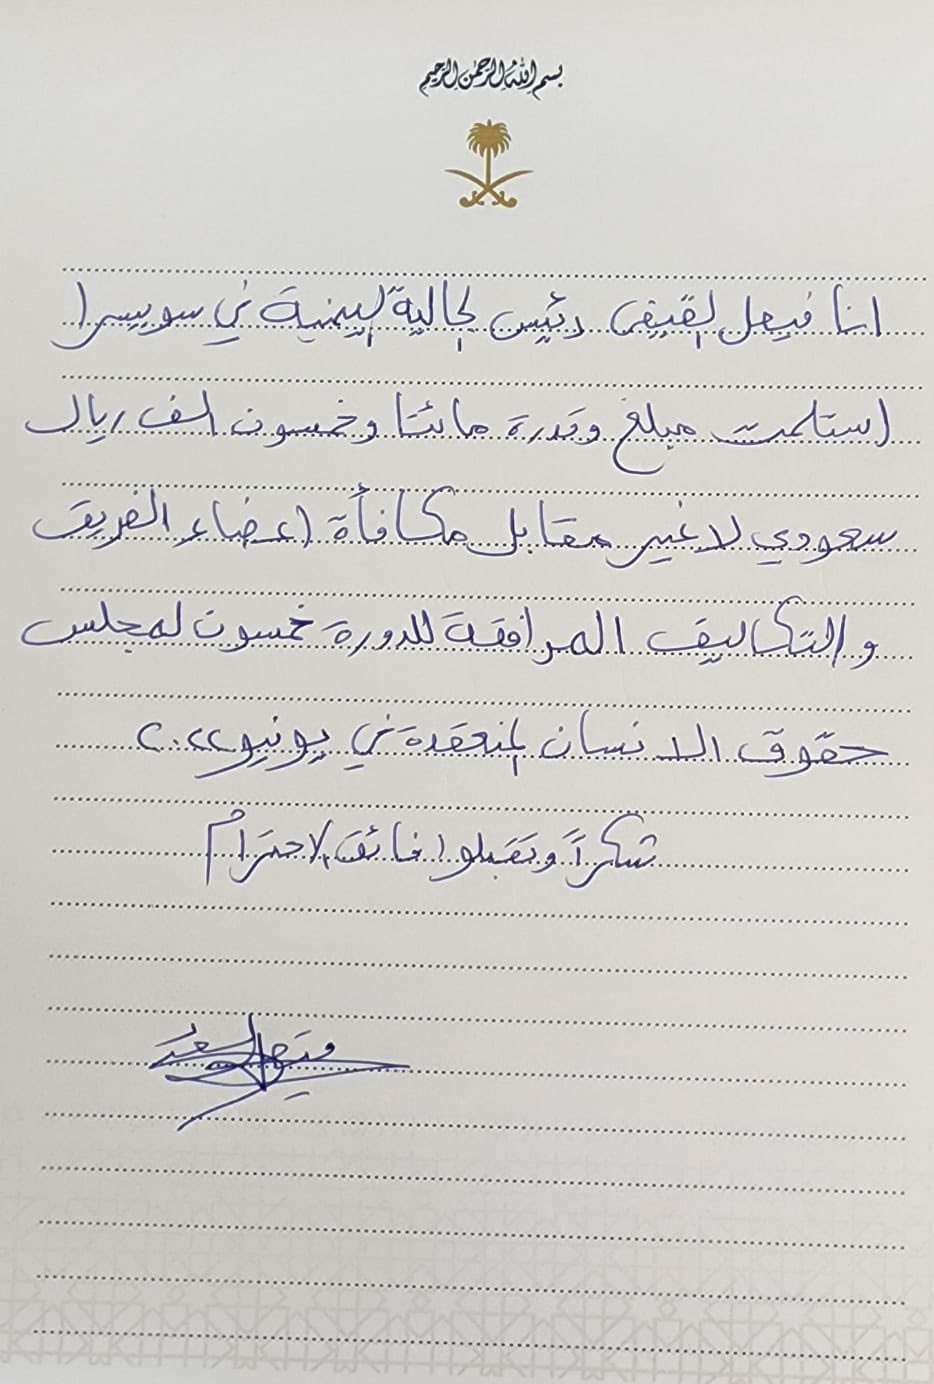 بسم الله الرحمن الرحيم
انا فيصل القيفي رئيس الجالية اليمنية في سويسرا
استلمت مبلغ وقدرة مائتا وخمسون الف ريال
سعودي لا غير مقابل مكافأة اعضاء الفريق
والتكاليف المرافقة للدورة خمسون لمجلس
حقوق الانسان المنعقدة في يونيو ٢٠٢٢
شكراً وتقبلوا فائق الاحترام